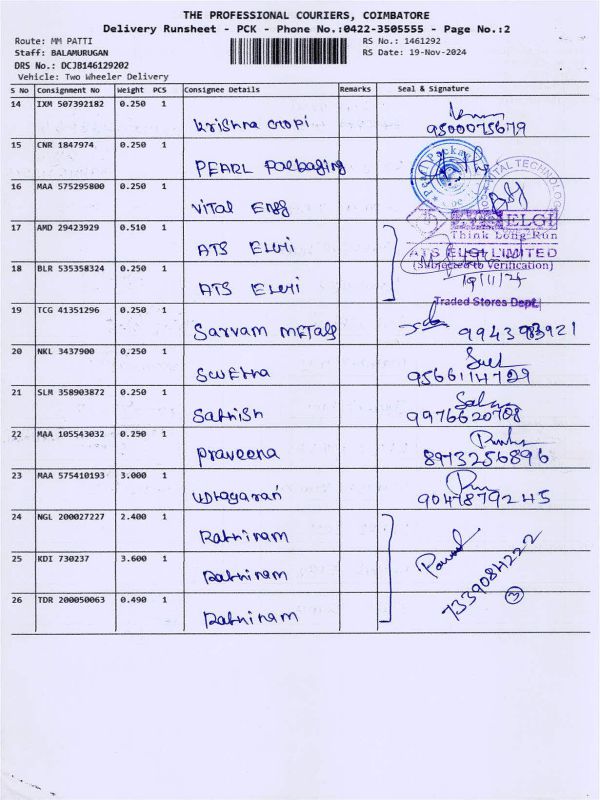 THE PROFESSIONAL COURIERS, COIMBATORE
Delivery Runsheet - PCK - Phone No.:0422-3505555 - Page No.:2
Route: MM PATTI RS No.: 1461292
Staff: BALAMURUGAN RS Date: 19-Nov-2024
DRS No.: DCJB146129202
Vehicle: Two Wheeler Delivery
S No Consignment No Weight PCS Consignee Details Remarks Seal & Signature
14 IXM 507392182 0.250 1
Krishna Gopi 9500075679
15 CNR 1847974 0.250 1
PEARL Packaging
16 MAA 575295800 0.250 1
Vital Engg
17 AMD 29423929 0.510 1
ATS ELGI
ELGI
Think Long Run
ATS ELGI LIMITED
(Subjected to Verification)
18 BLR 535358324 0.250 1
ATS ELGI
19/11/24
Traded Stores Dept.
19 TCG 41351296 0.250 1
Sarvam METALS
20 NKL 3437900 0.250 1
SWETHA 9566114729
21 SLM 358903872 0.250 1
Sathish 9976620708
22 MAA 105543032 0.290 1
Praveena 8973256896
23 MAA 575410193 3.000 1
Udhayaran 9047879245
24 NGL 200027227 2.400 1
Rathinam
25 KDI 730237 3.600 1
Rathinam
7339084222
26 TDR 200050063 0.490 1
Rathinam